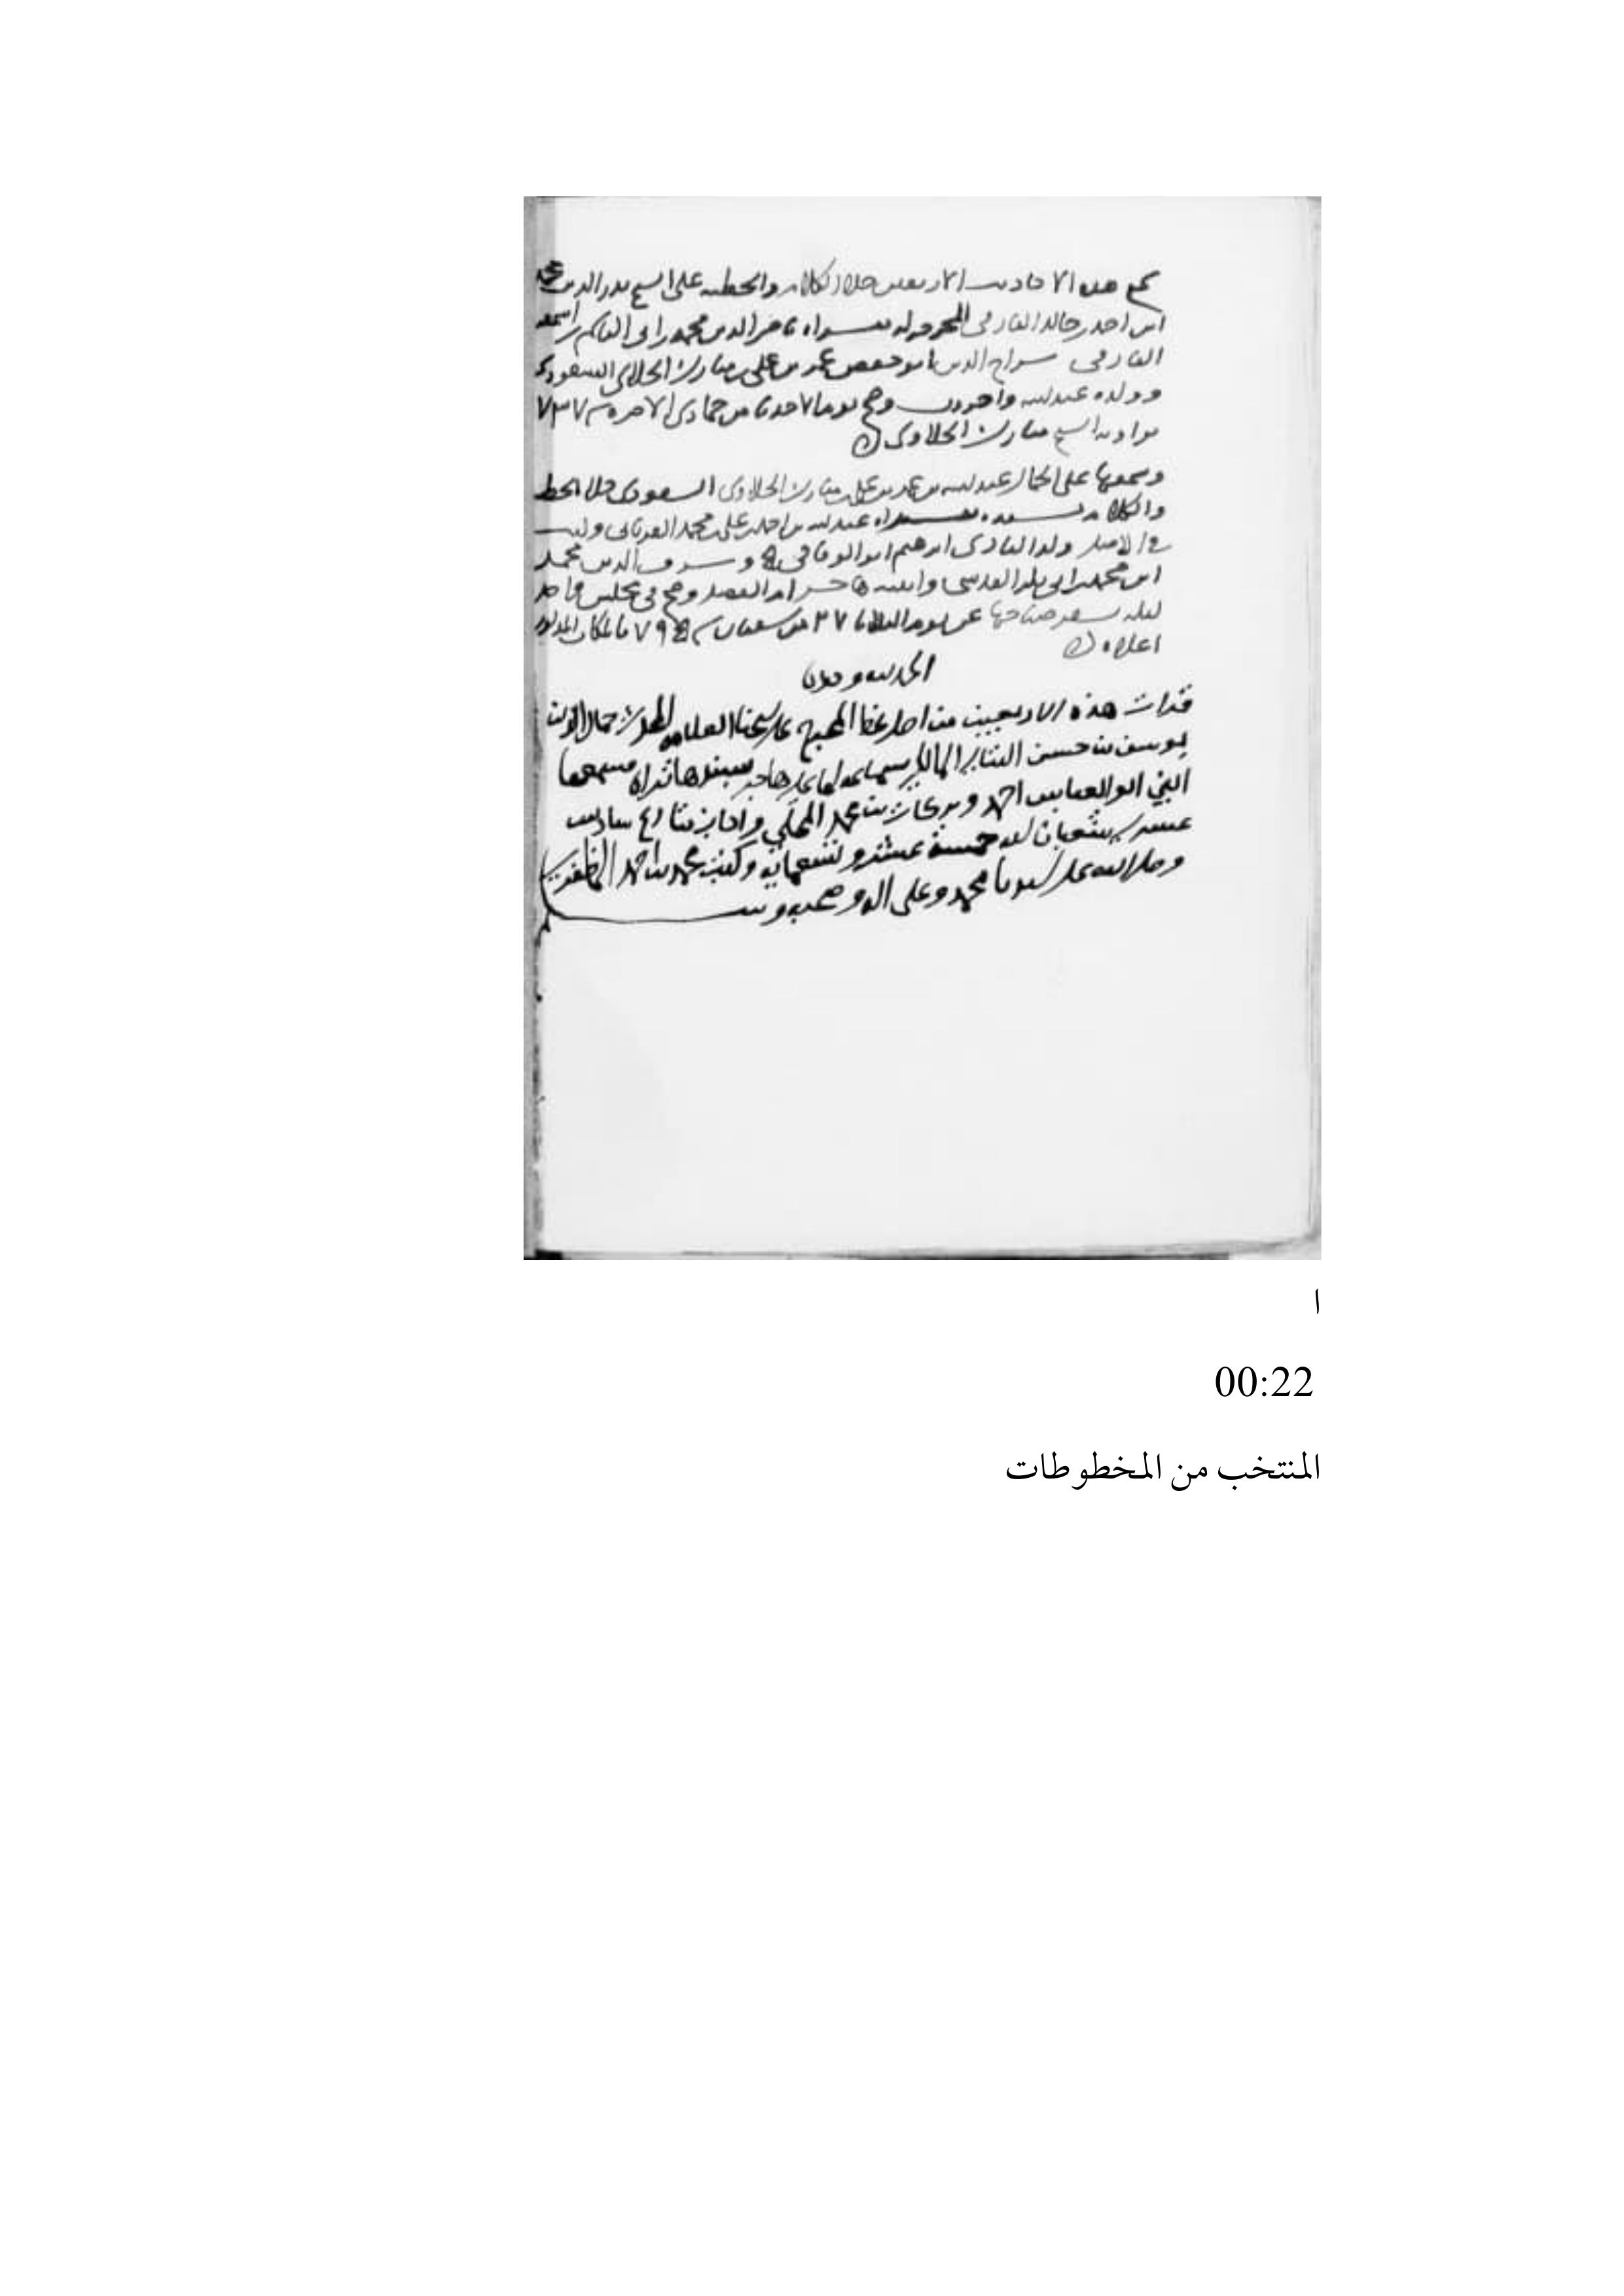 سمع هذه الاحاديث الاربعين خلا الكلام والخطبه على الشيخ بدر الدين محمد
ابن احمد بن خالد الفارقي المخرجه له بقراه ناصر الدين محمد بن ابي القاسم بن اسمعيل
الفارقي سراج الدين ابو حفص عمر بن علي بن مبارك الحلاوي السعودي
وولده عبد الله واخرون وصح يوم الاحد من جمادى الاخره ٧٣٧
بزاويه الشيخ مبارك الحلاوي
وسمعها على الجمال عبد الله بن عمر بن علي بن مبارك الحلاوي السعودي خلا الخطبه
والكلام بسنده بقراه عبد الله بن احمد بن علي بن محمد العرياني وكتب
في الاصل ولد القارى ابرهيم ابو الوفا في وشرف الدين محمد
ابن محمد بن ابي بكر القدسي وابنته وصح في مجلس واحد
ليله يسفر صباحها عن يوم الثلاثا ٢٧ من شعبان ٧٩ بالمكان المذكور
اعلاه
الحمد لله وحده
قرات هذه الاربعين من اصل على شيخنا العلامه المحدث جمال الدين
يوسف بن حسن التتايي المالكي بسماعه لها على بسندها تراه فسمعها
ابو العباس احمد وبركات بن محمد المحلي واجاز بتاريخ سادس
عشر شعبان سنة خمسة عشر وتسعمايه وكتب محمد بن احمد المظفري
وصلى الله على سيدنا محمد وعلى اله وصحبه وسلم
ا
00:22
المنتخب من المخطوطات